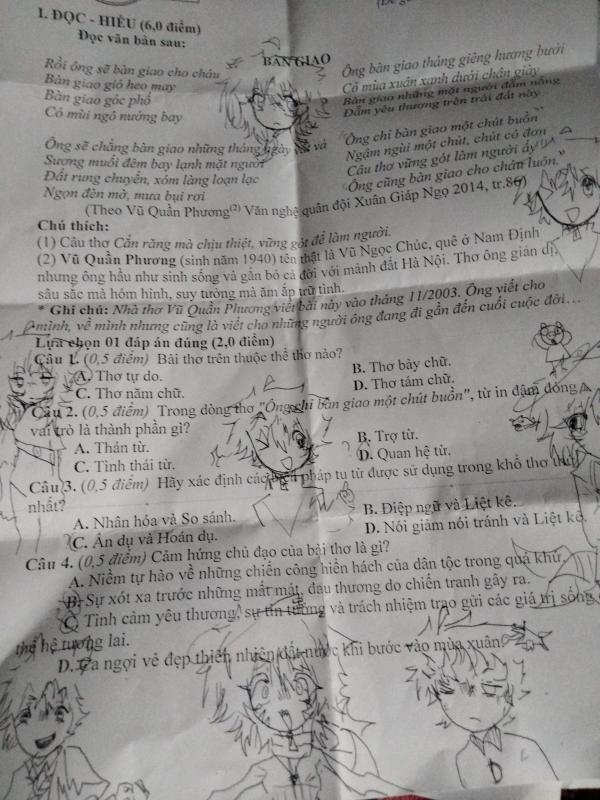 I. ĐỌC - HIỂU (6,0 điểm)
Đọc văn bản sau:
BÀN GIAO
Rồi ông sẽ bàn giao cho cháu
Bàn giao gió heo may
Bàn giao góc phố
Có mùi ngô nướng bay
Ông sẽ chẳng bàn giao những tháng ngày vất vả
Sương muối đêm bay lạnh mặt người
Đất rung chuyển, xóm làng loạn lạc
Ngọn đèn mờ, mưa bụi rơi
Ông bàn giao tháng giêng hương bưởi
Cỏ mùa xuân xanh dưới chân giày
Bàn giao những mặt người đẫm nắng
Đẫm yêu thương trên trái đất này
Ông chỉ bàn giao một chút buồn
Ngậm ngùi một chút, chút cô đơn
Câu thơ vững gót làm người ấy
Ông cũng bàn giao cho cháu luôn.
(Theo Vũ Quần Phương(2) Văn nghệ quân đội Xuân Giáp Ngọ 2014, tr.86)
Chú thích:
(1) Câu thơ Cắn răng mà chịu thiệt, vững gót để làm người.
(2) Vũ Quần Phương (sinh năm 1940) tên thật là Vũ Ngọc Chúc, quê ở Nam Định
nhưng ông hầu như sinh sống và gắn bó cả đời với mảnh đất Hà Nội. Thơ ông giản dị,
sâu sắc mà hóm hỉnh, suy tưởng mà ăm ắp trữ tình.
* Ghi chú: Nhà thơ Vũ Quần Phương viết bài này vào tháng 11/2003. Ông viết cho
mình, về mình nhưng cũng là viết cho những người ông đang đi gần đến cuối cuộc đời…
Lựa chọn 01 đáp án đúng (2,0 điểm)
Câu 1. (0,5 điểm) Bài thơ trên thuộc thể thơ nào?
A. Thơ tự do.
B. Thơ bảy chữ.
C. Thơ năm chữ.
D. Thơ tám chữ.
Câu 2. (0,5 điểm) Trong dòng thơ "Ông chỉ bàn giao một chút buồn", từ in đậm đóng
vai trò là thành phần gì?
A. Thán từ.
B. Trợ từ.
C. Tình thái từ.
D. Quan hệ từ.
Câu 3. (0,5 điểm) Hãy xác định các biện pháp tu từ được sử dụng trong khổ thơ thứ
nhất?
A. Nhân hóa và So sánh.
B. Điệp ngữ và Liệt kê.
C. Ẩn dụ và Hoán dụ.
D. Nói giảm nói tránh và Liệt kê.
Câu 4. (0,5 điểm) Cảm hứng chủ đạo của bài thơ là gì?
A. Niềm tự hào về những chiến công hiển hách của dân tộc trong quá khứ.
B. Sự xót xa trước những mất mát, đau thương do chiến tranh gây ra.
C. Tình cảm yêu thương, sự tin tưởng và trách nhiệm trao gửi các giá trị sống
thế hệ tương lai.
D. Ca ngợi vẻ đẹp thiên nhiên đất nước khi bước vào mùa xuân.